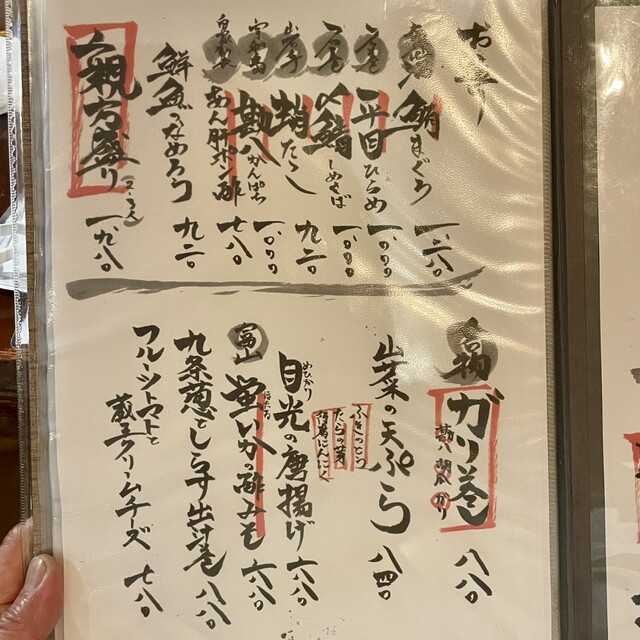 お造り
鮪 まぐろ 一、一六〇
平目 ひらめ 一、〇〇〇
〆鯖 しめさば 一、〇〇〇
蛸 たこ 九二〇
勘八 かんぱち 一、〇〇〇
あん肝ポン酢 七八〇
鮮魚のなめろう 九二〇
親方盛り 一、九八〇
名物 ガリ巻 八八〇
山菜の天ぷら 八四〇
ふきのとう
たらの芽
目光の唐揚げ 六八〇
めひかり
富山 蛍いかの酢みそ 六八〇
九条葱としらす出汁巻 八八〇
フルーツトマトと
蔵王クリームチーズ 七八〇